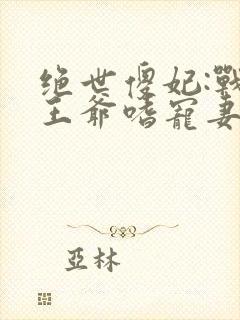 绝世傻妃:戰
王爺嗜寵妻
亞林